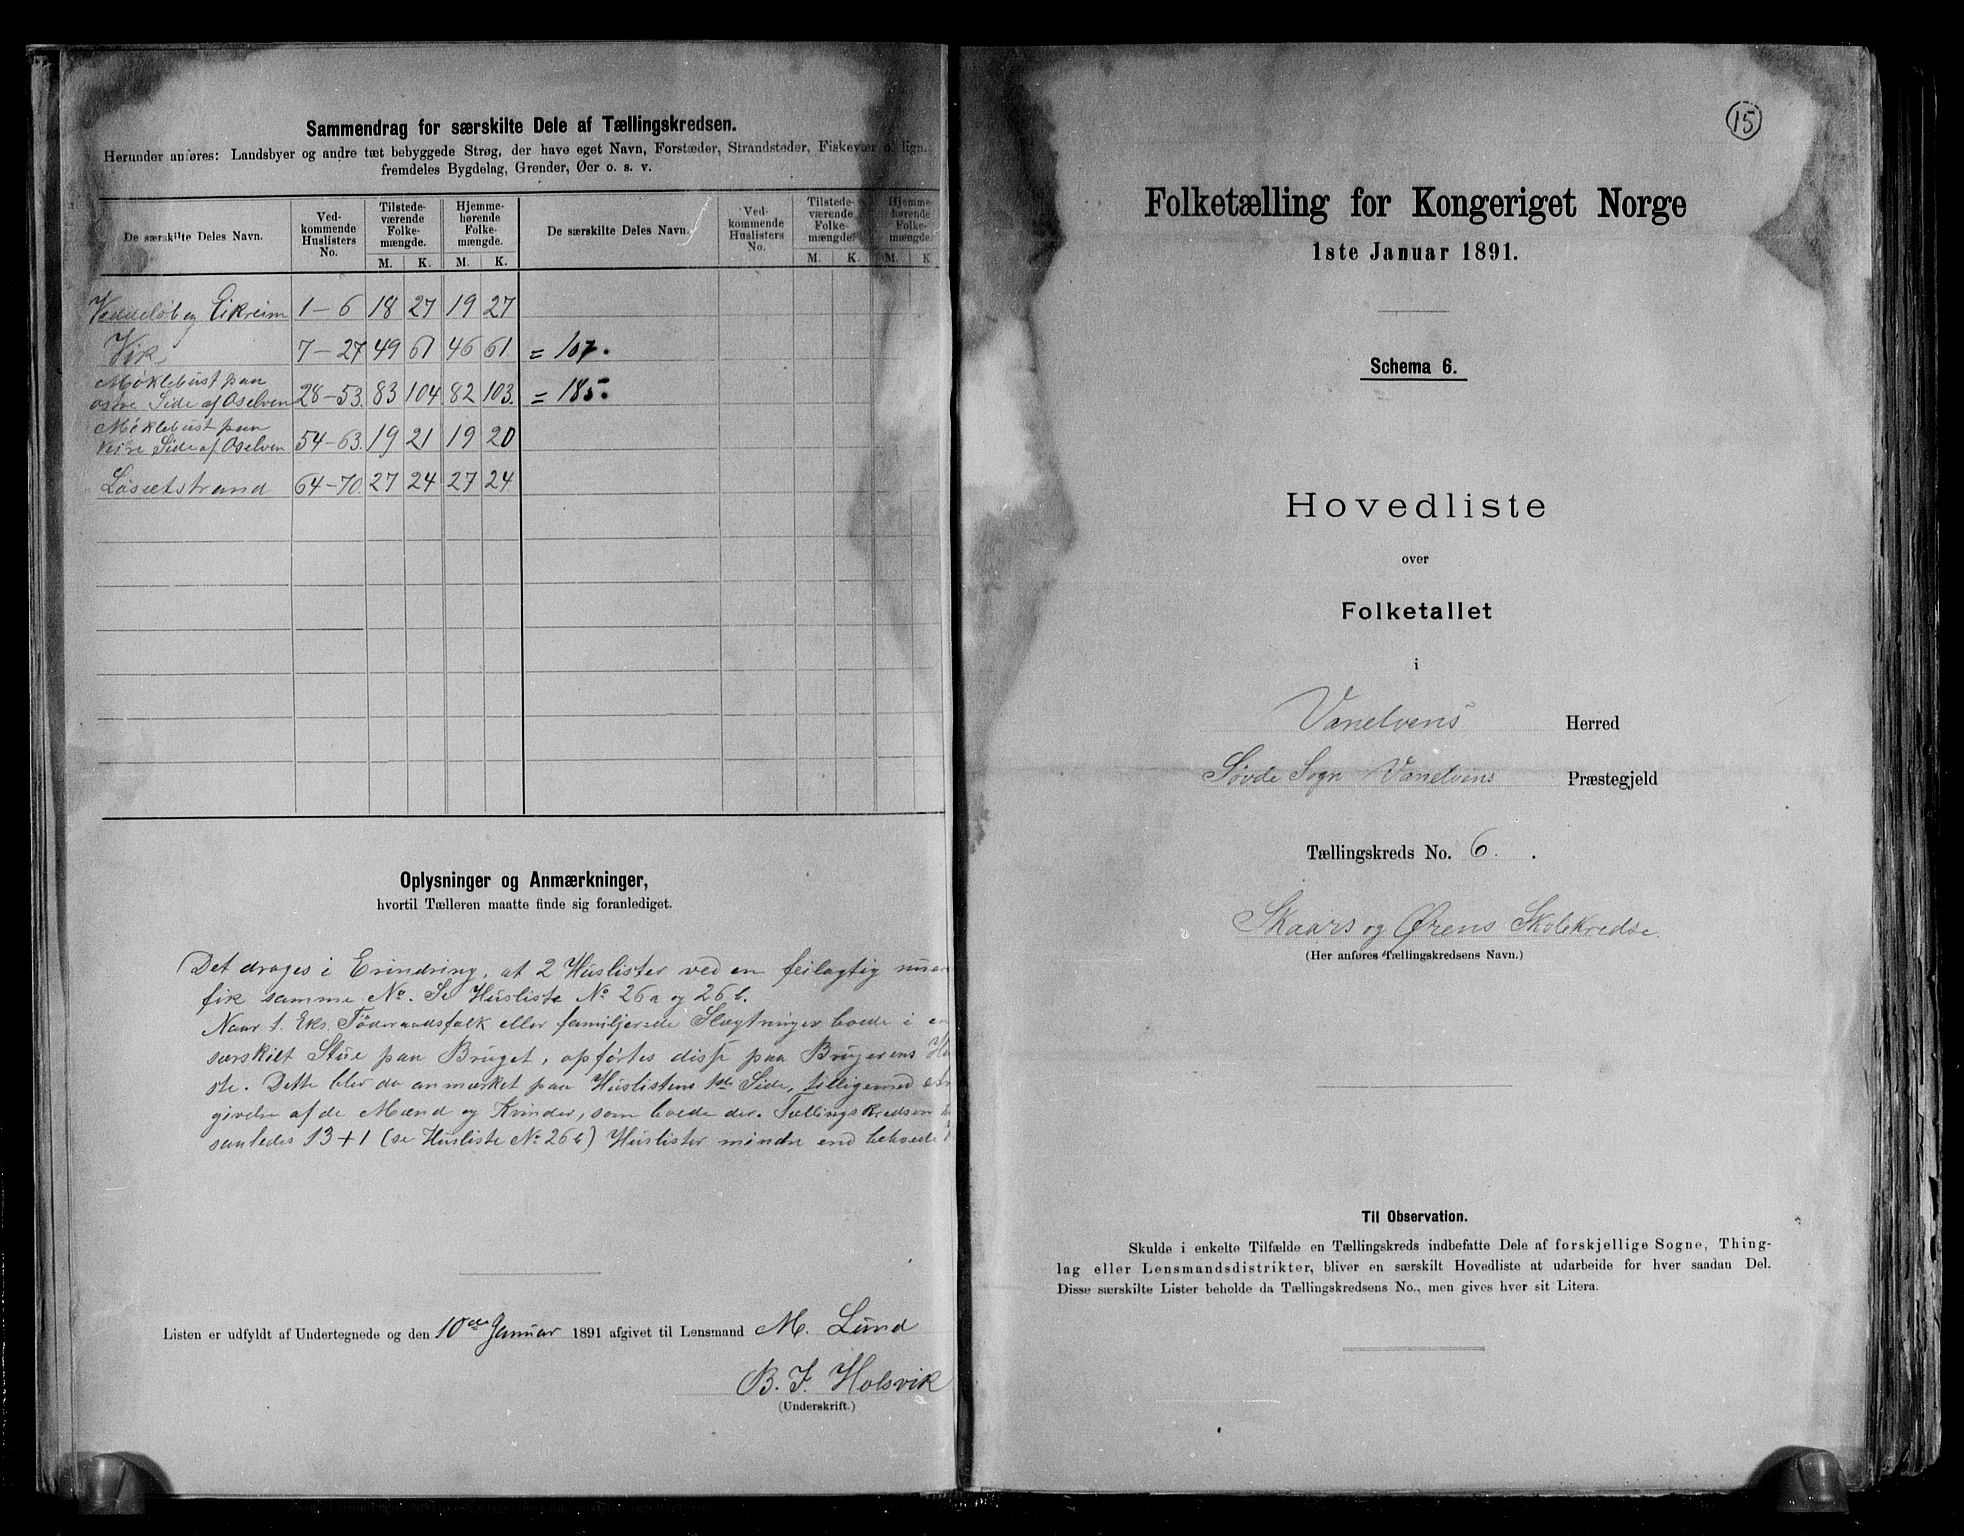 Sammendrag for særskilte Dele af Tællingskredsen.
Herunder anføres: Landsbyer og andre tæt bebyggede Strøg, der have eget Navn, Forstæder, Strandsteder, Fiskevær o. lign.
fremdeles Bygdelag, Grender, Øer o. s. v.
De særskilte Deles Navn. Ved-kommende Huslisters No. Tilstede-værende Folke-mængde. Hjemme-hørende Folke-mængde. De særskilte Deles Navn. Ved-kommende Huslisters No. Tilstede-værende Folke-mængde. Hjemme-hørende Folke-mængde.
M. K. M. K. M. K. M. K
og Eikreim 1-6 18 27 19 27
Vik 7-27 49 61 46 61 = 107.
Møklebust paa
østre Side af Oselven 28-53. 83 104 82 103. = 185.
Møklebust paa
vestre Side af Oselven 54-63. 19 21 19 20
Løsetstrand 64-70. 27 24 27 24
Oplysninger og Anmærkninger,
hvortil Tælleren maatte finde sig foranlediget.
Det drages i Erindring, at 2 Huslister ved en feilagtig
fik samme No. Se Husliste No 26a og 26b.
Naar f. Eks. Föderaadsfolk eller familjerede Slægtninger boede i en
særskilt Stue paa Bruget, opførtes disse paa Brugerens
ste. Dette blev da anmærket paa Huslistens 1ste Side, tilligemed
givelse af de Mænd og Kvinder, som boede der. Tællingskredsen
saaledes 13+1 (se Husliste No 26b) Huslister mindre end behøvede
Listen er udfyldt af Undertegnede og den 10de Januar 1891 afgivet til Lensmand M. Lund
B. J. Holsvik
(Underskrift.)
15
Folketælling for Kongeriget Norge
1ste Januar 1891.
Schema 6.
Hovedliste
over
Folketallet
i
Vanelvens Herred
Søvde Sogn Vanelvens Præstegjeld
Tællingskreds No. 6.
Skaars og Ørens Skolekredse.
(Her anføres Tællingskredsens Navn.)
Til Observation.
Skulde i enkelte Tilfælde en Tællingskreds indbefatte Dele af forskjellige Sogne, Thing-
lag eller Lensmandsdistrikter, bliver en særskilt Hovedliste at udarbeide for hver saadan Del.
Disse særskilte Lister beholde da Tællingskredsens No., men gives hver sit Litera.